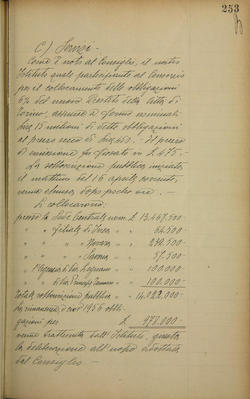 253
C) Servizi -
Come è noto al Consiglio, il nostro
Istituto quale partecipante al Consorzio
per il collocamento delle obbligazioni
6% del nuovo Prestito della Città di
Torino, assunse a fermo nominali
lire 15 milioni di dette obbligazioni
al prezzo secco di
di emissione fu fissato in £ 475 -
La sottoscrizione pubblica iniziata
il mattino del 16 aprile corrente,
venne chiusa dopo poche ore. -
Si collocarono:
presso la Sede Centrale nom. £ 13.467.500
" " filiale di 64.500
" " " " Novara " 292.500
" " " " Savona " 57.500
" l'Agenzia di 100.000
" " " 100.000
Totale sottoscrizione pubblica " 14.022.000
La rimanenza di nom 1956 obbli-
gazioni per £ 978.000
venne trattenuta dall'Istituto, giusta
la deliberazione all'uopo adottata
dal Consiglio. -